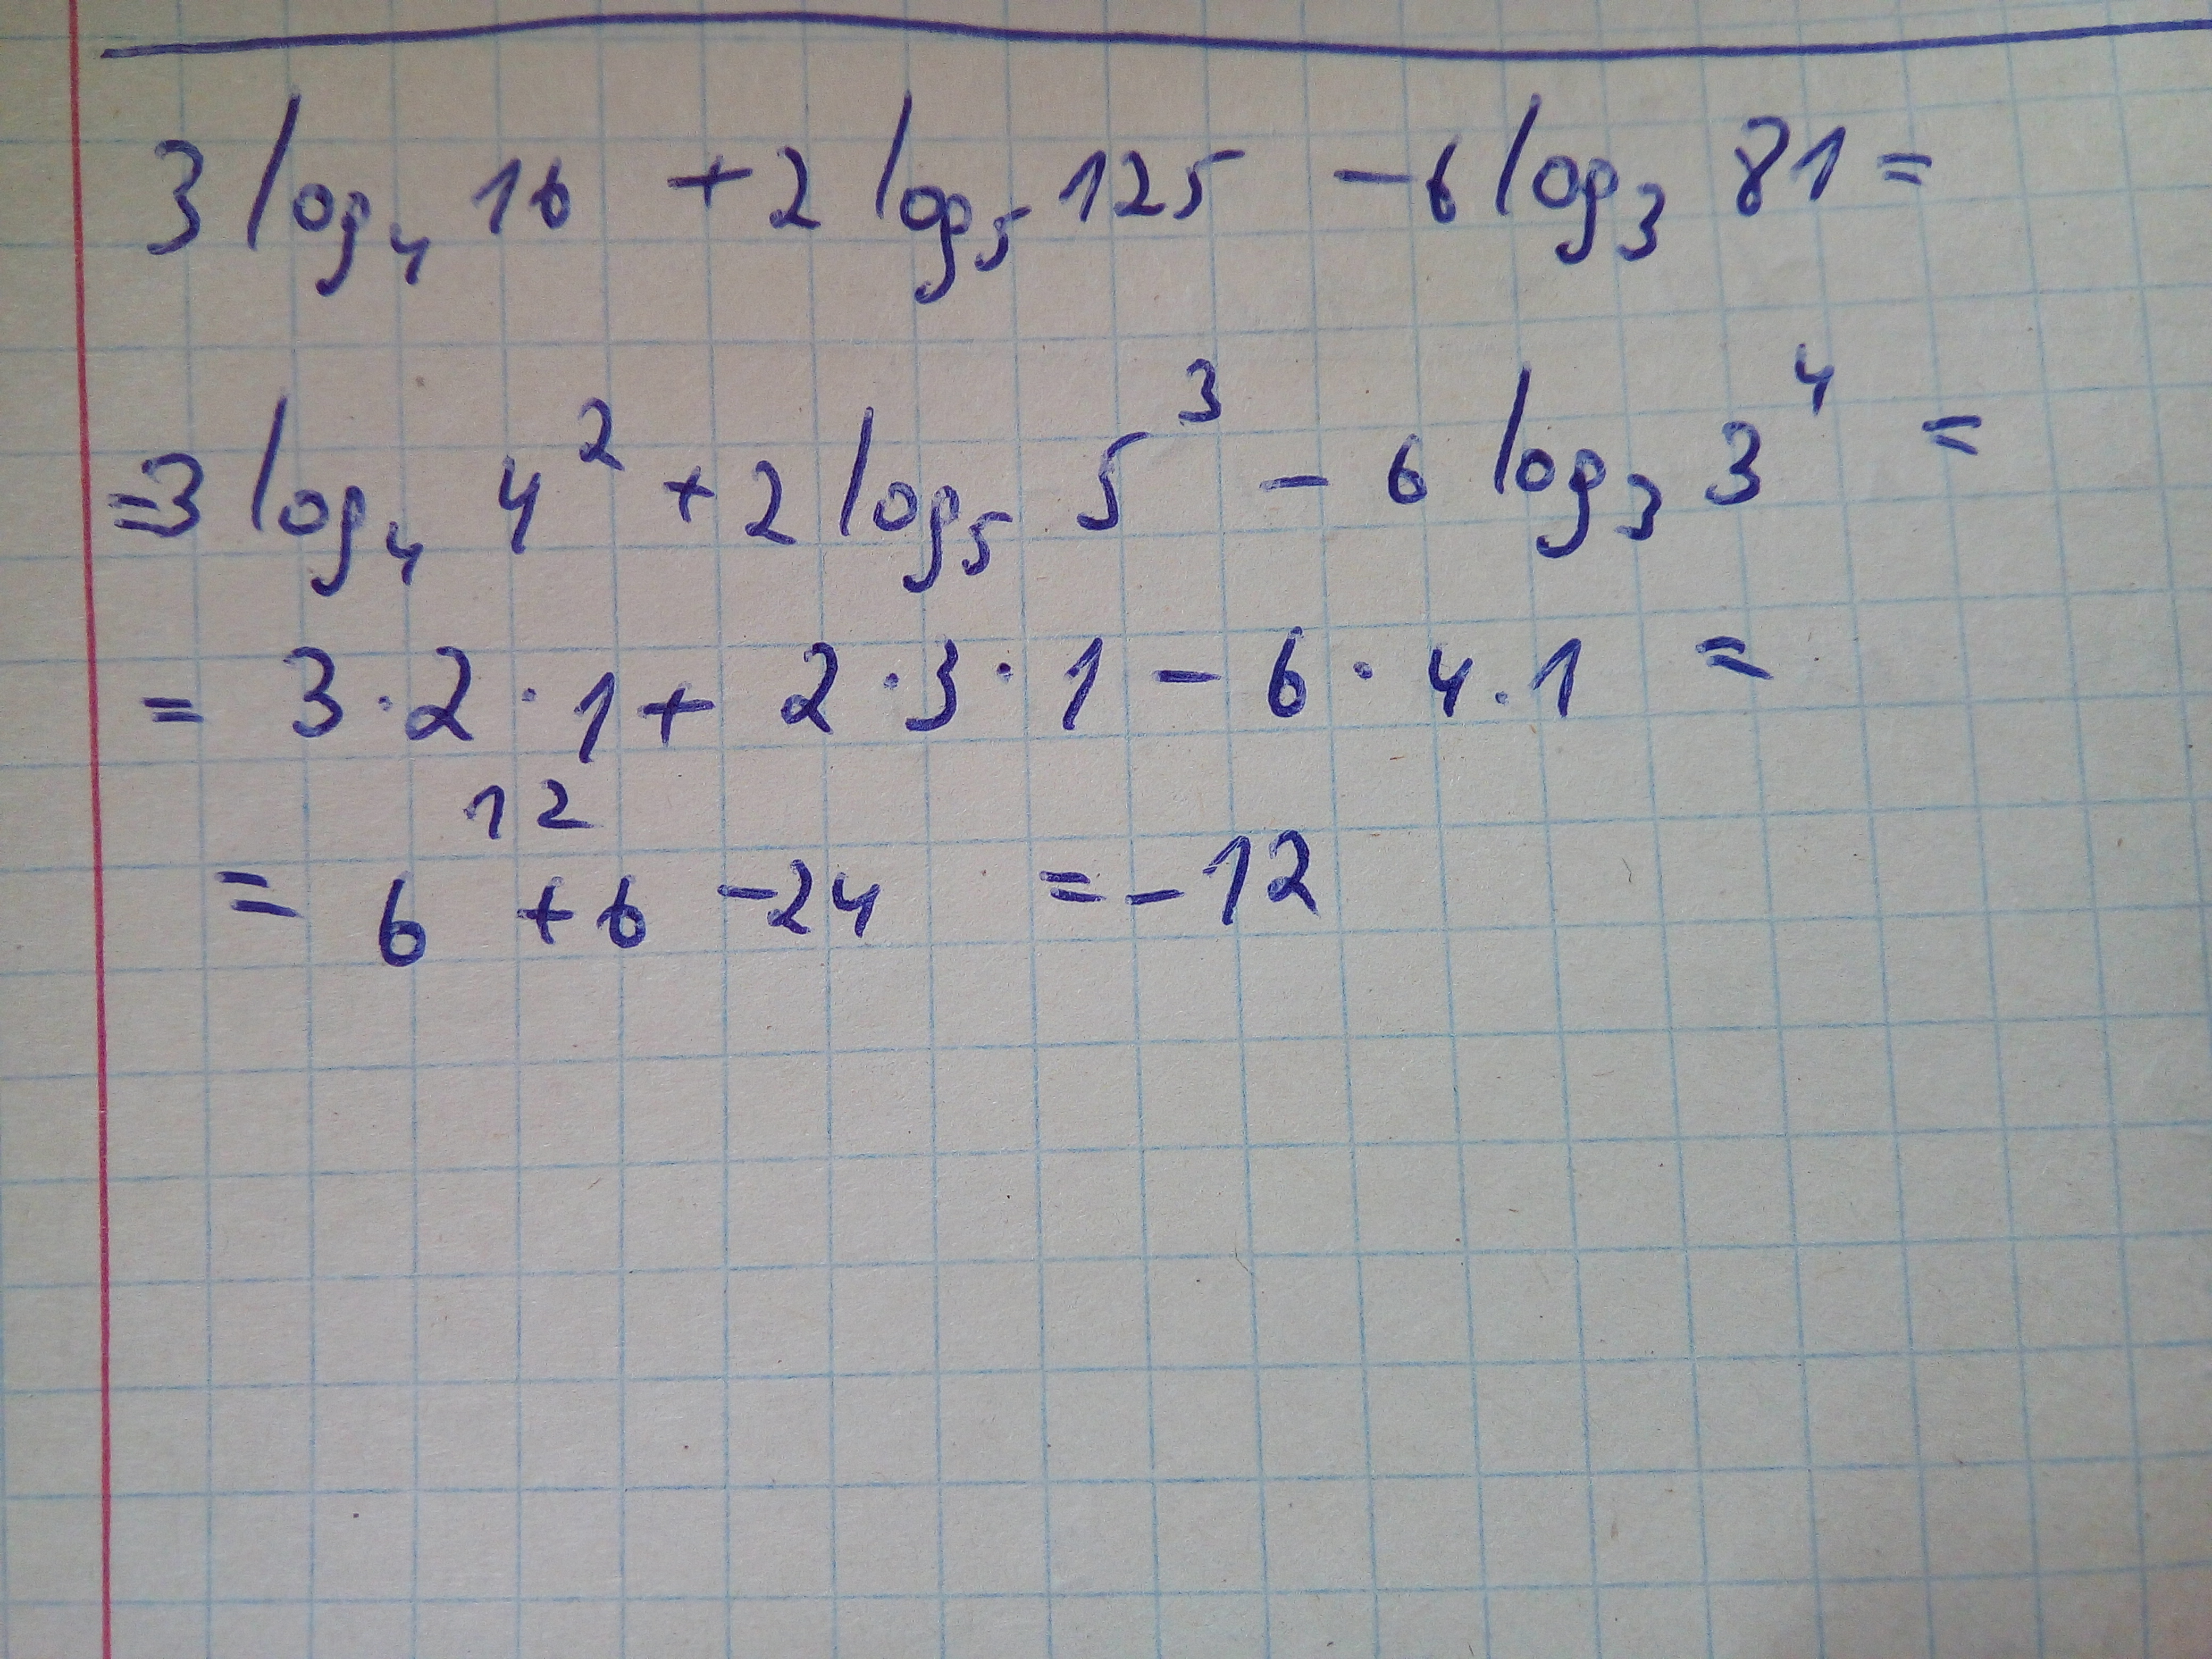 3 log₄ 16 + 2 log₅ 125 - 6 log₃ 81 =
= 3 log₄ 4² + 2 log₅ 5³ - 6 log₃ 3⁴ =
= 3 · 2 · 1 + 2 · 3 · 1 - 6 · 4 · 1 =
12
= 6 + 6 - 24 = - 12